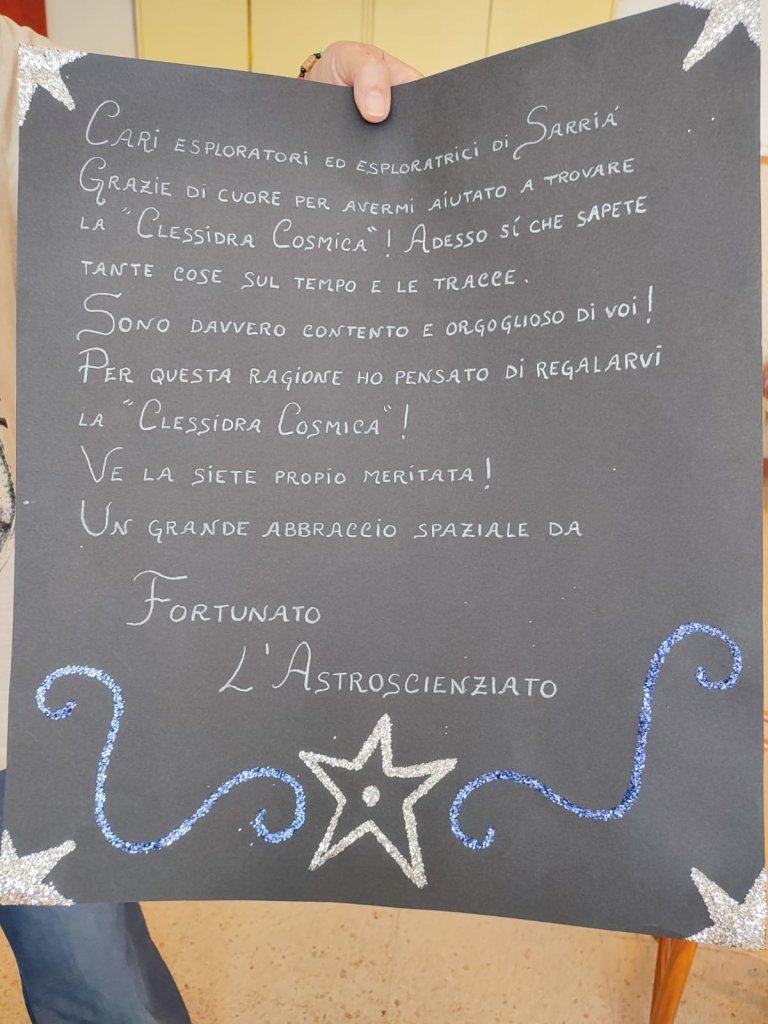 Cari esploratori ed esploratrici di Sarriá
Grazie di cuore per avermi aiutato a trovare
la "Clessidra Cosmica"! Adesso sí che sapete
tante cose sul tempo e le tracce.
Sono davvero contento e orgoglioso di voi!
Per questa ragione ho pensato di regalarvi
la "Clessidra Cosmica"!
Ve la siete propio meritata!
Un grande abbraccio spaziale da
Fortunato
L'Astroscienziato